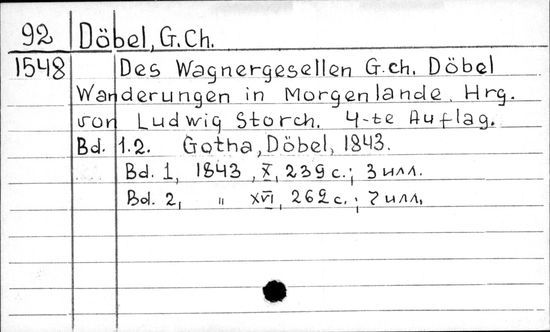 92 Döbel, G.Ch.
1548 Des Wagnergesellen G.ch. Döbel
Wanderungen in Morgenlande. Hrg.
von Ludwig Storch. 4-te Auflag.
Bd. 1.2. Gotha, Döbel, 1843.
Bd. 1, 1843, X, 239 c.; 3 илл.
Bd. 2, " XVI, 262 c.; 7 илл.